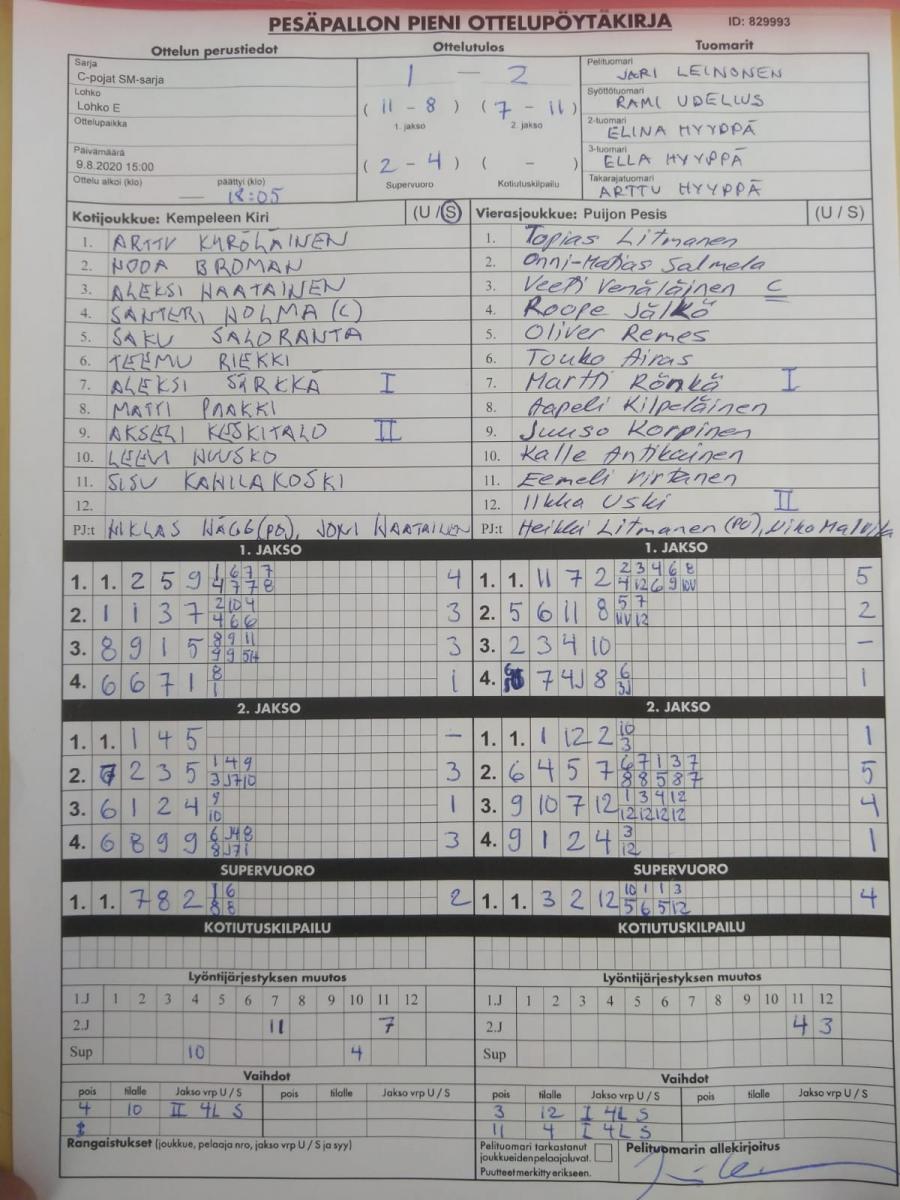 PESÄPALLON PIENI OTTELUPÖYTÄKIRJA ID: 829993
Ottelun perustiedot Ottelutulos Tuomarit
Sarja
C-pojat SM-sarja
Lohko
Lohko E
Ottelupaikka
Päivämäärä
9.8.2020 15:00
Ottelu alkoi (klo) päättyi (klo)
— 18:05
1 — 2
(11 - 8) (7 - 11)
1. jakso 2. jakso
(2 - 4) ( - )
Supervuoro Kotiutuskilpailu
Pelituomari
JARI LEINONEN
Syöttötuomari
RAMI UDELIUS
2-tuomari
ELINA HYYPPÄ
3-tuomari
ELLA HYYPPÄ
Takarajatuomari
ARTTU HYYPPÄ
Kotijoukkue: Kempeleen Kiri (U / S)
1. ARTTU KYRÖLÄINEN
2. NOOA BROMAN
3. ALEKSI HAATAINEN
4. SANTERI HOLMA (C)
5. SAKU SALORANTA
6. TEEMU RIEKKI
7. ALEKSI SÄRKKÄ I
8. MATTI PAAKKI
9. AKSELI KESKITALO II
10. LEEVI HUUSKO
11. SISU KAHILAKOSKI
12.
PJ:t NIKLAS HÄGG (PO), JONI HAATAINEN
Vierasjoukkue: Puijon Pesis (U / S)
1. Topias Litmanen
2. Onni-Matias Salmela
3. Veeti Venäläinen C
4. Roope Jälkö
5. Oliver Remes
6. Touko Airas
7. Martti Rönkä I
8. Aapeli Kilpeläinen
9. Juuso Korpinen
10. Kalle Antikainen
11. Eemeli Virtanen
12. Ilkka Uski II
PJ:t Heikki Litmanen (PO), Niko
1. JAKSO
1. 1. 2 5 9 1 6 7 7 4
4 7 7 8
2. 1 1 3 7 2 10 4 3
4 6 6
3. 8 9 1 5 8 9 11 3
9 9
4. 6 6 7 1 8 1
1
2. JAKSO
1. 1. 1 4 5 –
2. 7 2 3 5 1 4 9 3
3 J7 10
3. 6 1 2 4 9 1
10
4. 6 8 9 9 6 J4 8 3
8 J7 1
SUPERVUORO
1. 1. 7 8 2 1 6 2
8 8
KOTIUTUSKILPAILU
Lyöntijärjestyksen muutos
1.J 1 2 3 4 5 6 7 8 9 10 11 12
2.J 11 7
Sup 10 4
Vaihdot
pois tilalle Jakso vrp U / S pois tilalle Jakso vrp U / S
4 10 II 4L S
Rangaistukset (joukkue, pelaaja nro, jakso vrp U / S ja syy)
1. JAKSO
1. 1. 11 7 2 2 3 4 6 8 5
4 12 6 9
2. 5 6 11 8 5 7 2
12
3. 2 3 4 10 –
4. 7 4J 8 6 1
3J
2. JAKSO
1. 1. 1 12 2 10 1
3
2. 6 4 5 7 6 7 1 3 7 5
8 8 5 8 7
3. 9 10 7 12 1 3 4 12 4
12 12 12 12
4. 9 1 2 4 3 1
12
SUPERVUORO
1. 1. 3 2 12 10 1 1 3 4
5 6 5 12
KOTIUTUSKILPAILU
Lyöntijärjestyksen muutos
1.J 1 2 3 4 5 6 7 8 9 10 11 12
2.J 4 3
Sup
Vaihdot
pois tilalle Jakso vrp U / S pois tilalle Jakso vrp U / S
3 12 I 4L S
11 4 I 4L S
Pelituomari tarkastanut
joukkueiden pelaajaluvat.
Puutteet merkitty erikseen.
Pelituomarin allekirjoitus